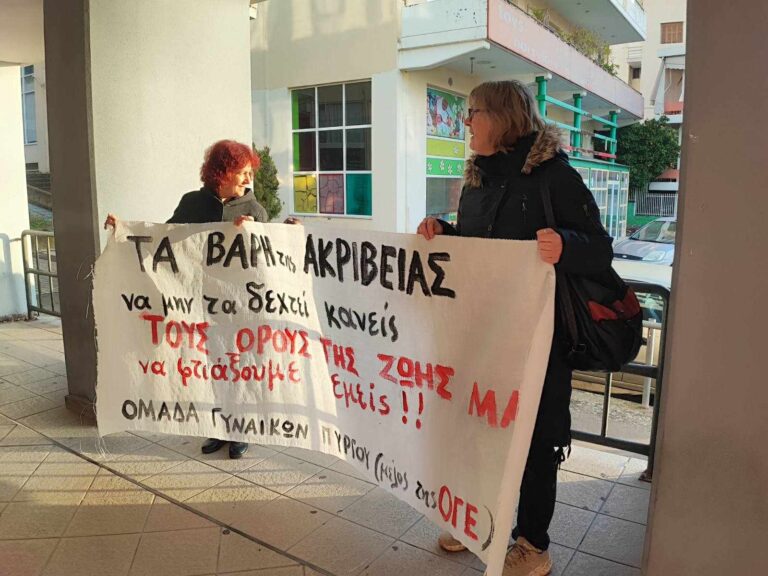 ΤΑ ΒΑΡΗ της ΑΚΡΙΒΕΙΑΣ
να μην τα δεχτεί κανείς
ΤΟΥΣ ΟΡΟΥΣ ΤΗΣ ΖΩΗΣ ΜΑ
να φτιάξουμε εμείς!!
ΟΜΑΔΑ ΓΥΝΑΙΚΩΝ ΠΥΡΓΟΥ (μέλος της ΟΓΕ)